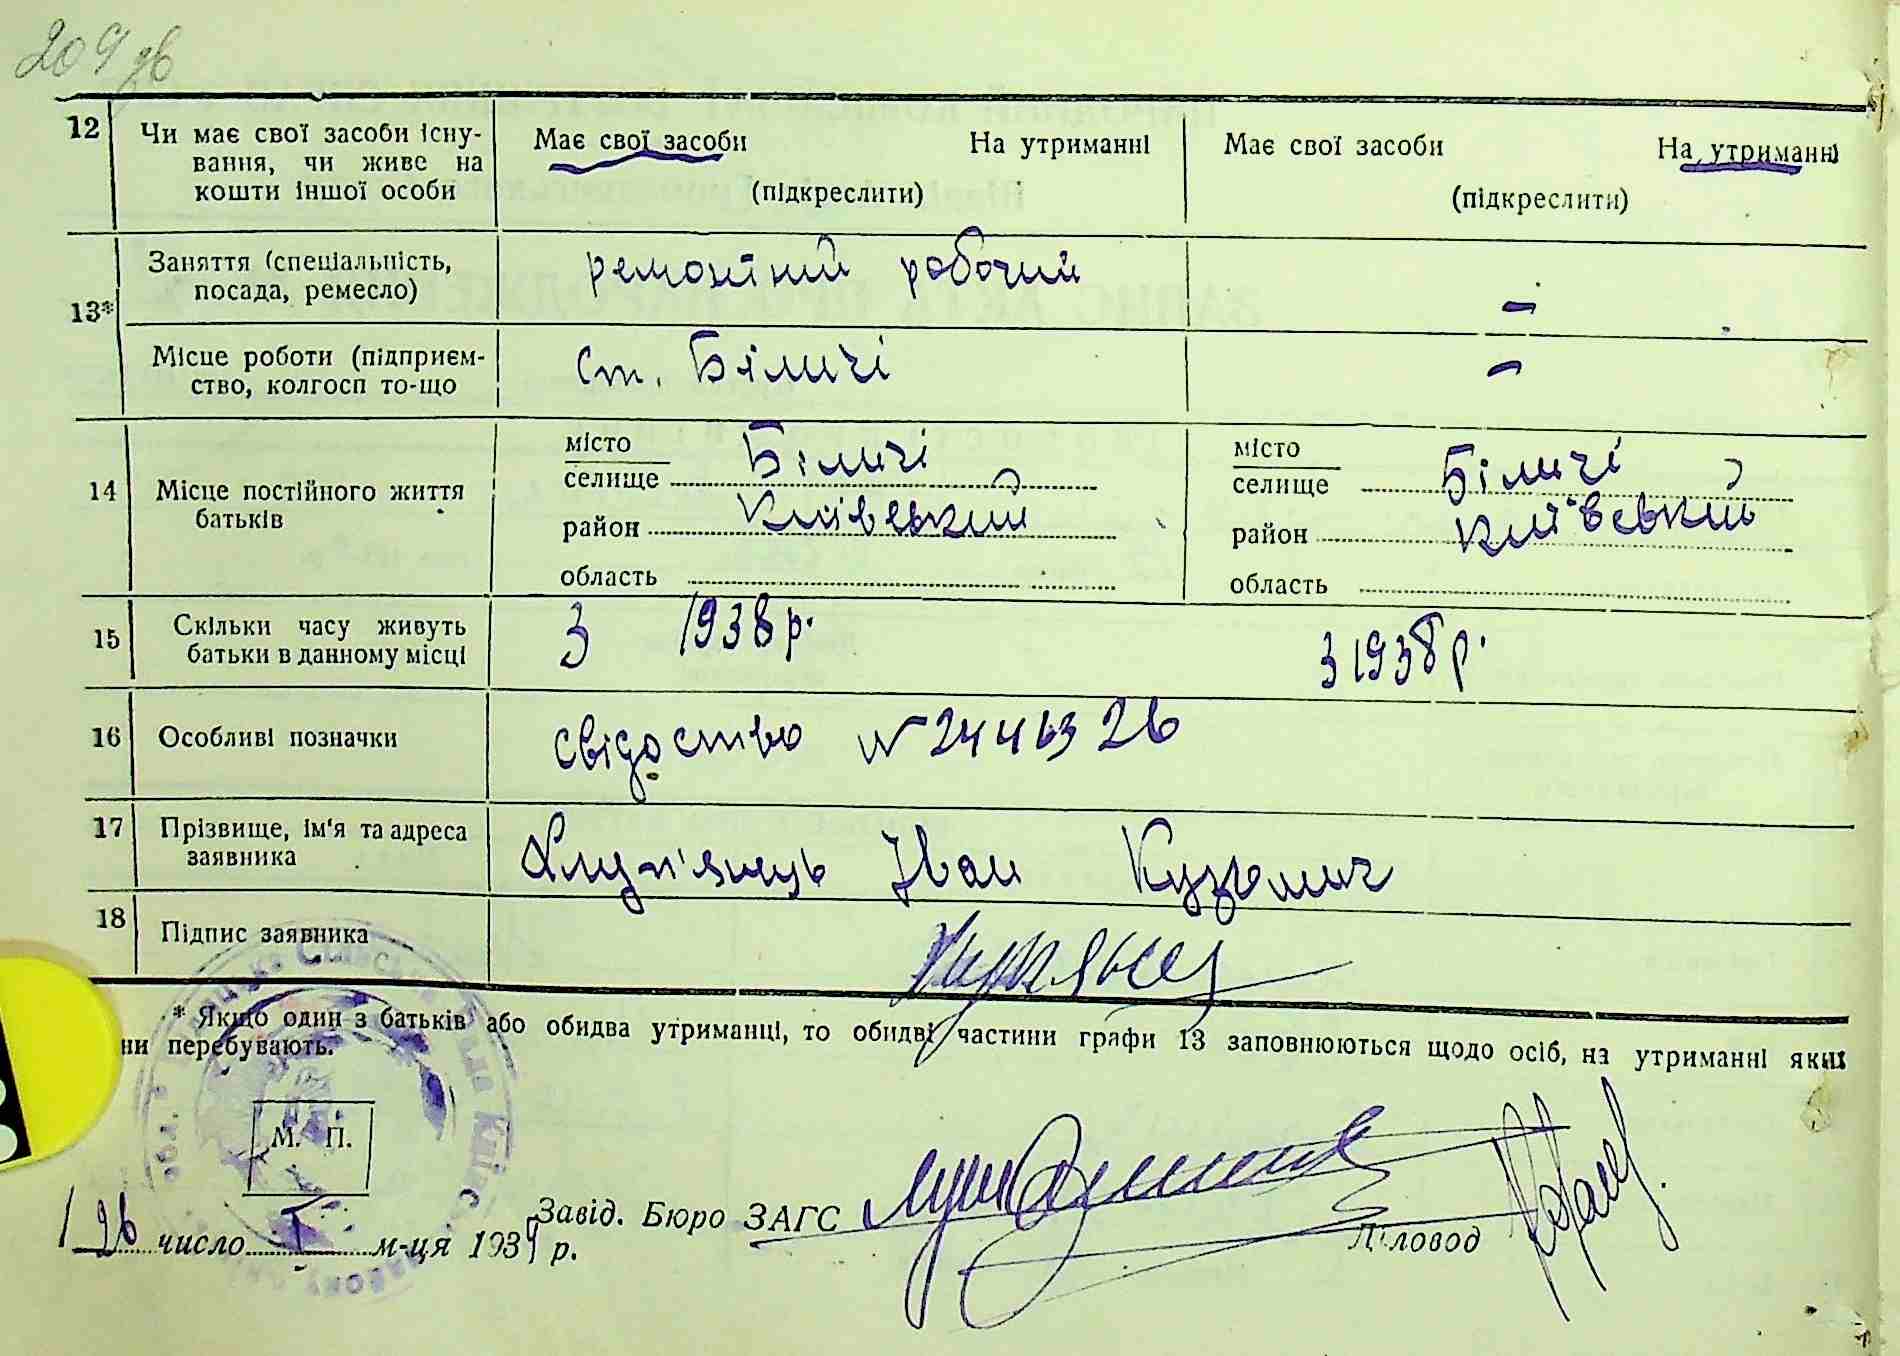 209 зв
12 Чи має свої засоби існу-
вання, чи живе на
кошти іншої особи
Має свої засоби На утриманні
(підкреслити)
Має свої засоби На утриманні
(підкреслити)
13*
Заняття (спеціальність,
посада, ремесло)
ремонтний робочий
–
Місце роботи (підприєм-
ство, колгосп то-що
ст. Біличі
–
14 Місце постійного життя
батьків
місто
селище Біличі
район Київський
область
місто
селище Біличі
район Київський
область
15 Скільки часу живуть
батьки в данному місці
З 1938 р.
З 1938 р.
16 Особливі позначки
свідоство № 24463 26
17 Прізвище, ім'я та адреса
заявника
Іван Кузьмич
18 Підпис заявника
* Якщо один з батьків або обидва утриманці, то обидві частини графи 13 заповнюються щодо осіб, на утриманні яких
ни перебувають.
М. П.
26 число I м-ця 1939 р.
Завід. Бюро ЗАГС
Діловод